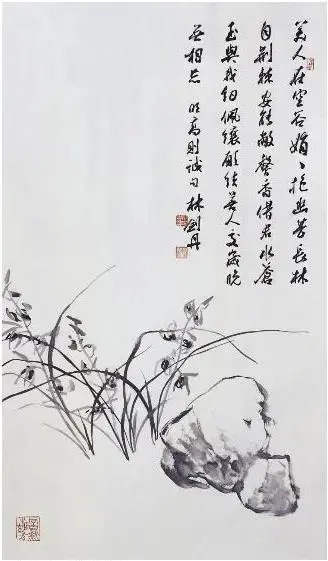 美人在空谷娟〻抱幽芳長林
自荆棘安能蔽馨香借君水蒼
玉與我紉佩纕願结美人交歲晚
無相忘 明高則诚句 林劍丹